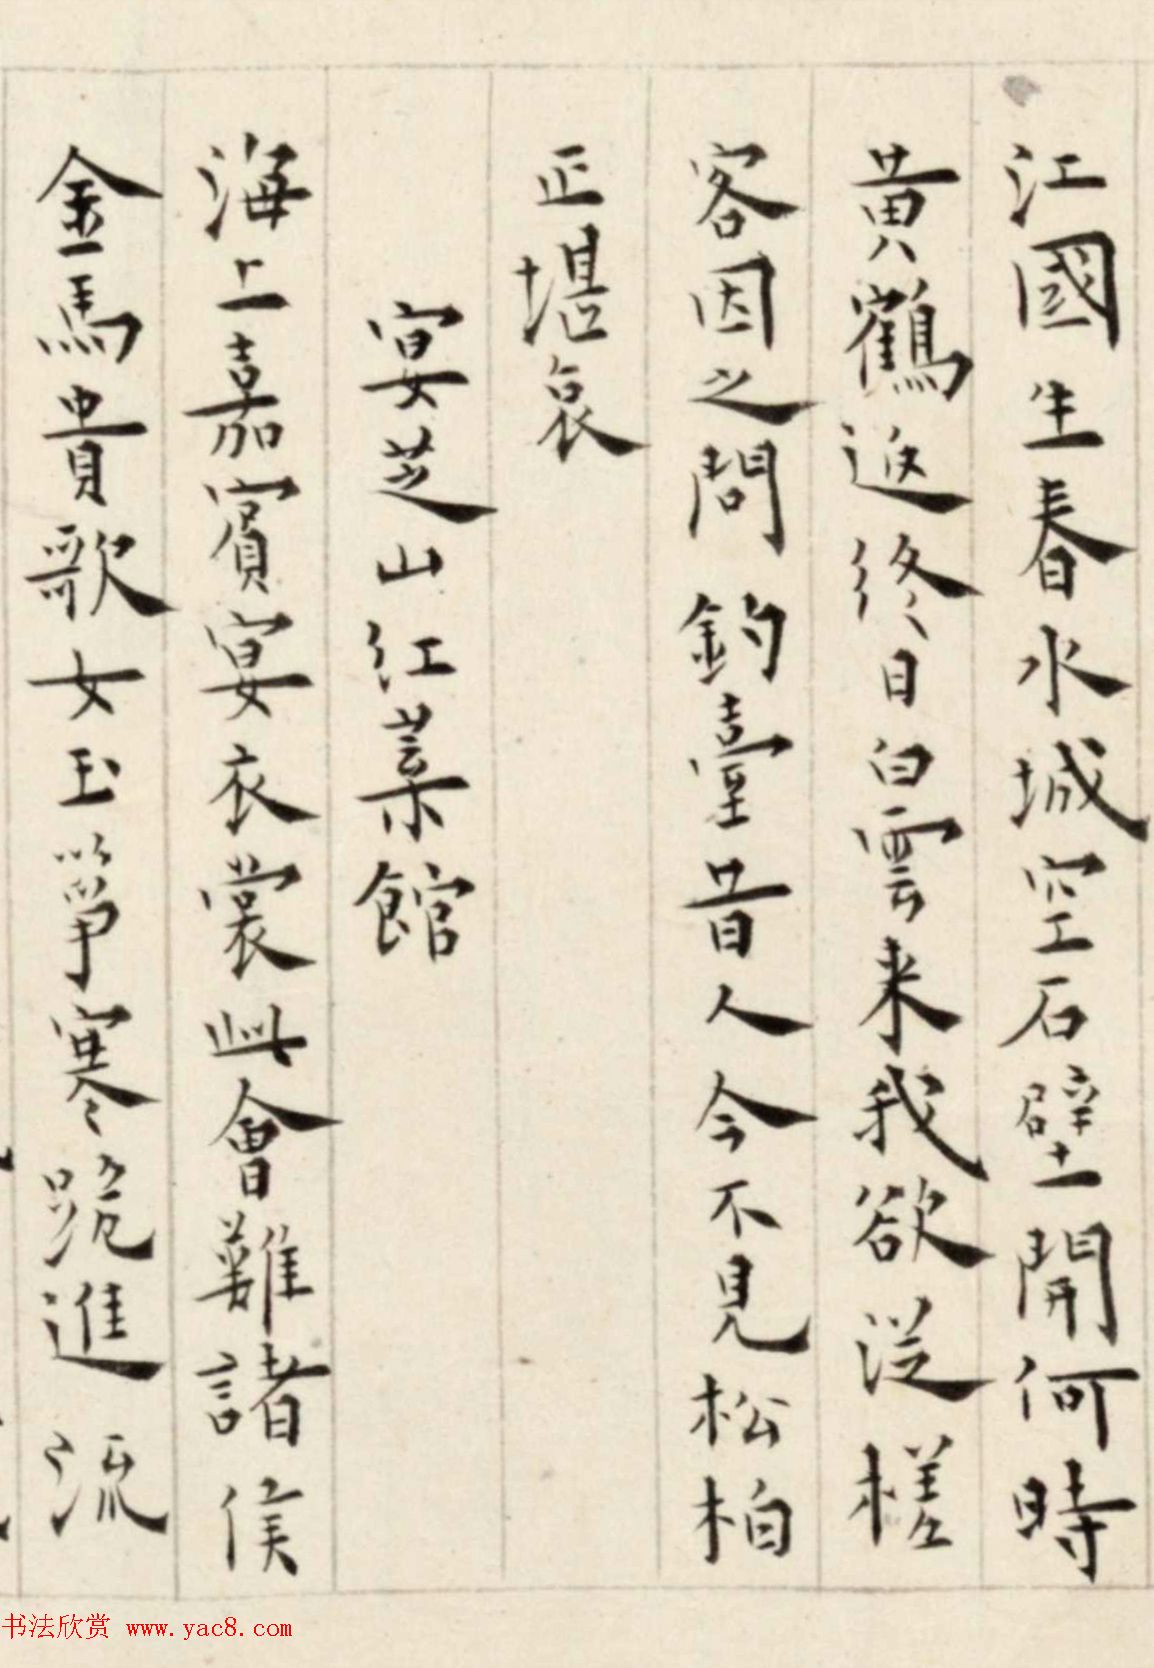 江國生春水城空石壁開何時
黄鶴返終日白雲来我欲從槎
客因之問釣臺昔人今不見松柏
正堪哀
宴芝山紅葉館
海上嘉賓宴衣裳此會難諸侯
金馬貴歌女玉箏寒跪進流
书法欣赏 www.yac8.com